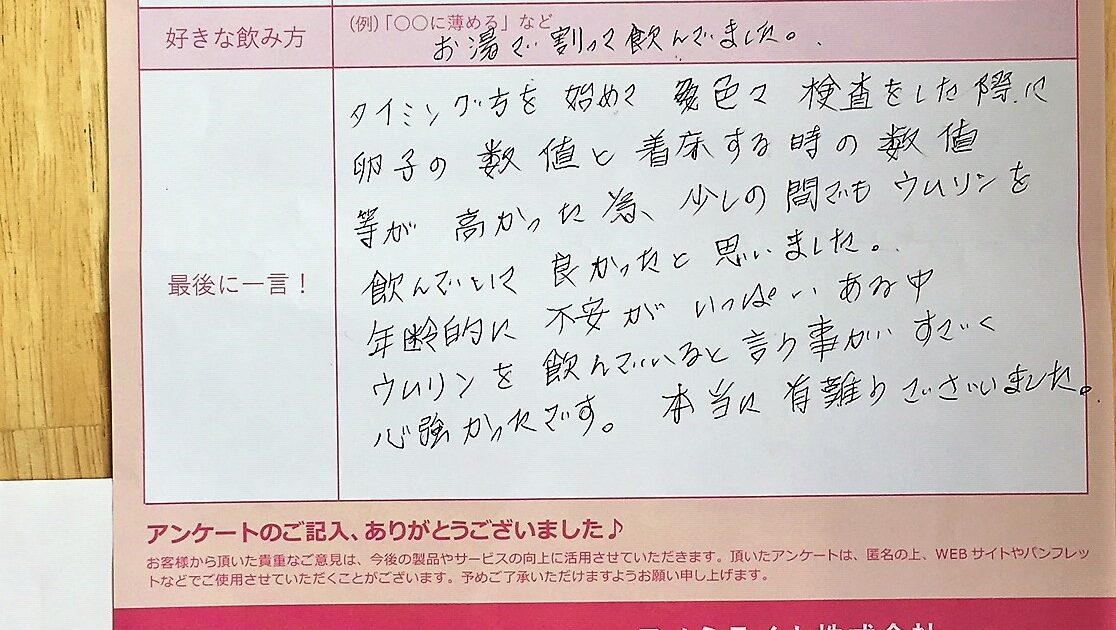 好きな飲み方
(例)「〇〇に薄める」など
お湯で割って飲んでました。
最後に一言！
タイミング方を 始めて 色々 検査をした際に
卵子の 数値と着床する時の数値
等が 高かった為、少しの間でも ウムリンを
飲んでいて 良かったと思いました。
年齢的に 不安が いっぱい ある中
ウムリンを飲んでいると言う事が すごく
心強かったです。 本当に有難うございました。
アンケートのご記入、ありがとうございました♪
お客様から頂いた貴重なご意見は、今後の製品やサービスの向上に活用させていただきます。頂いたアンケートは、匿名の上、WEBサイトやパンフレッ
トなどでご使用させていただくことがございます。予めご了承いただけますようお願い申し上げます。